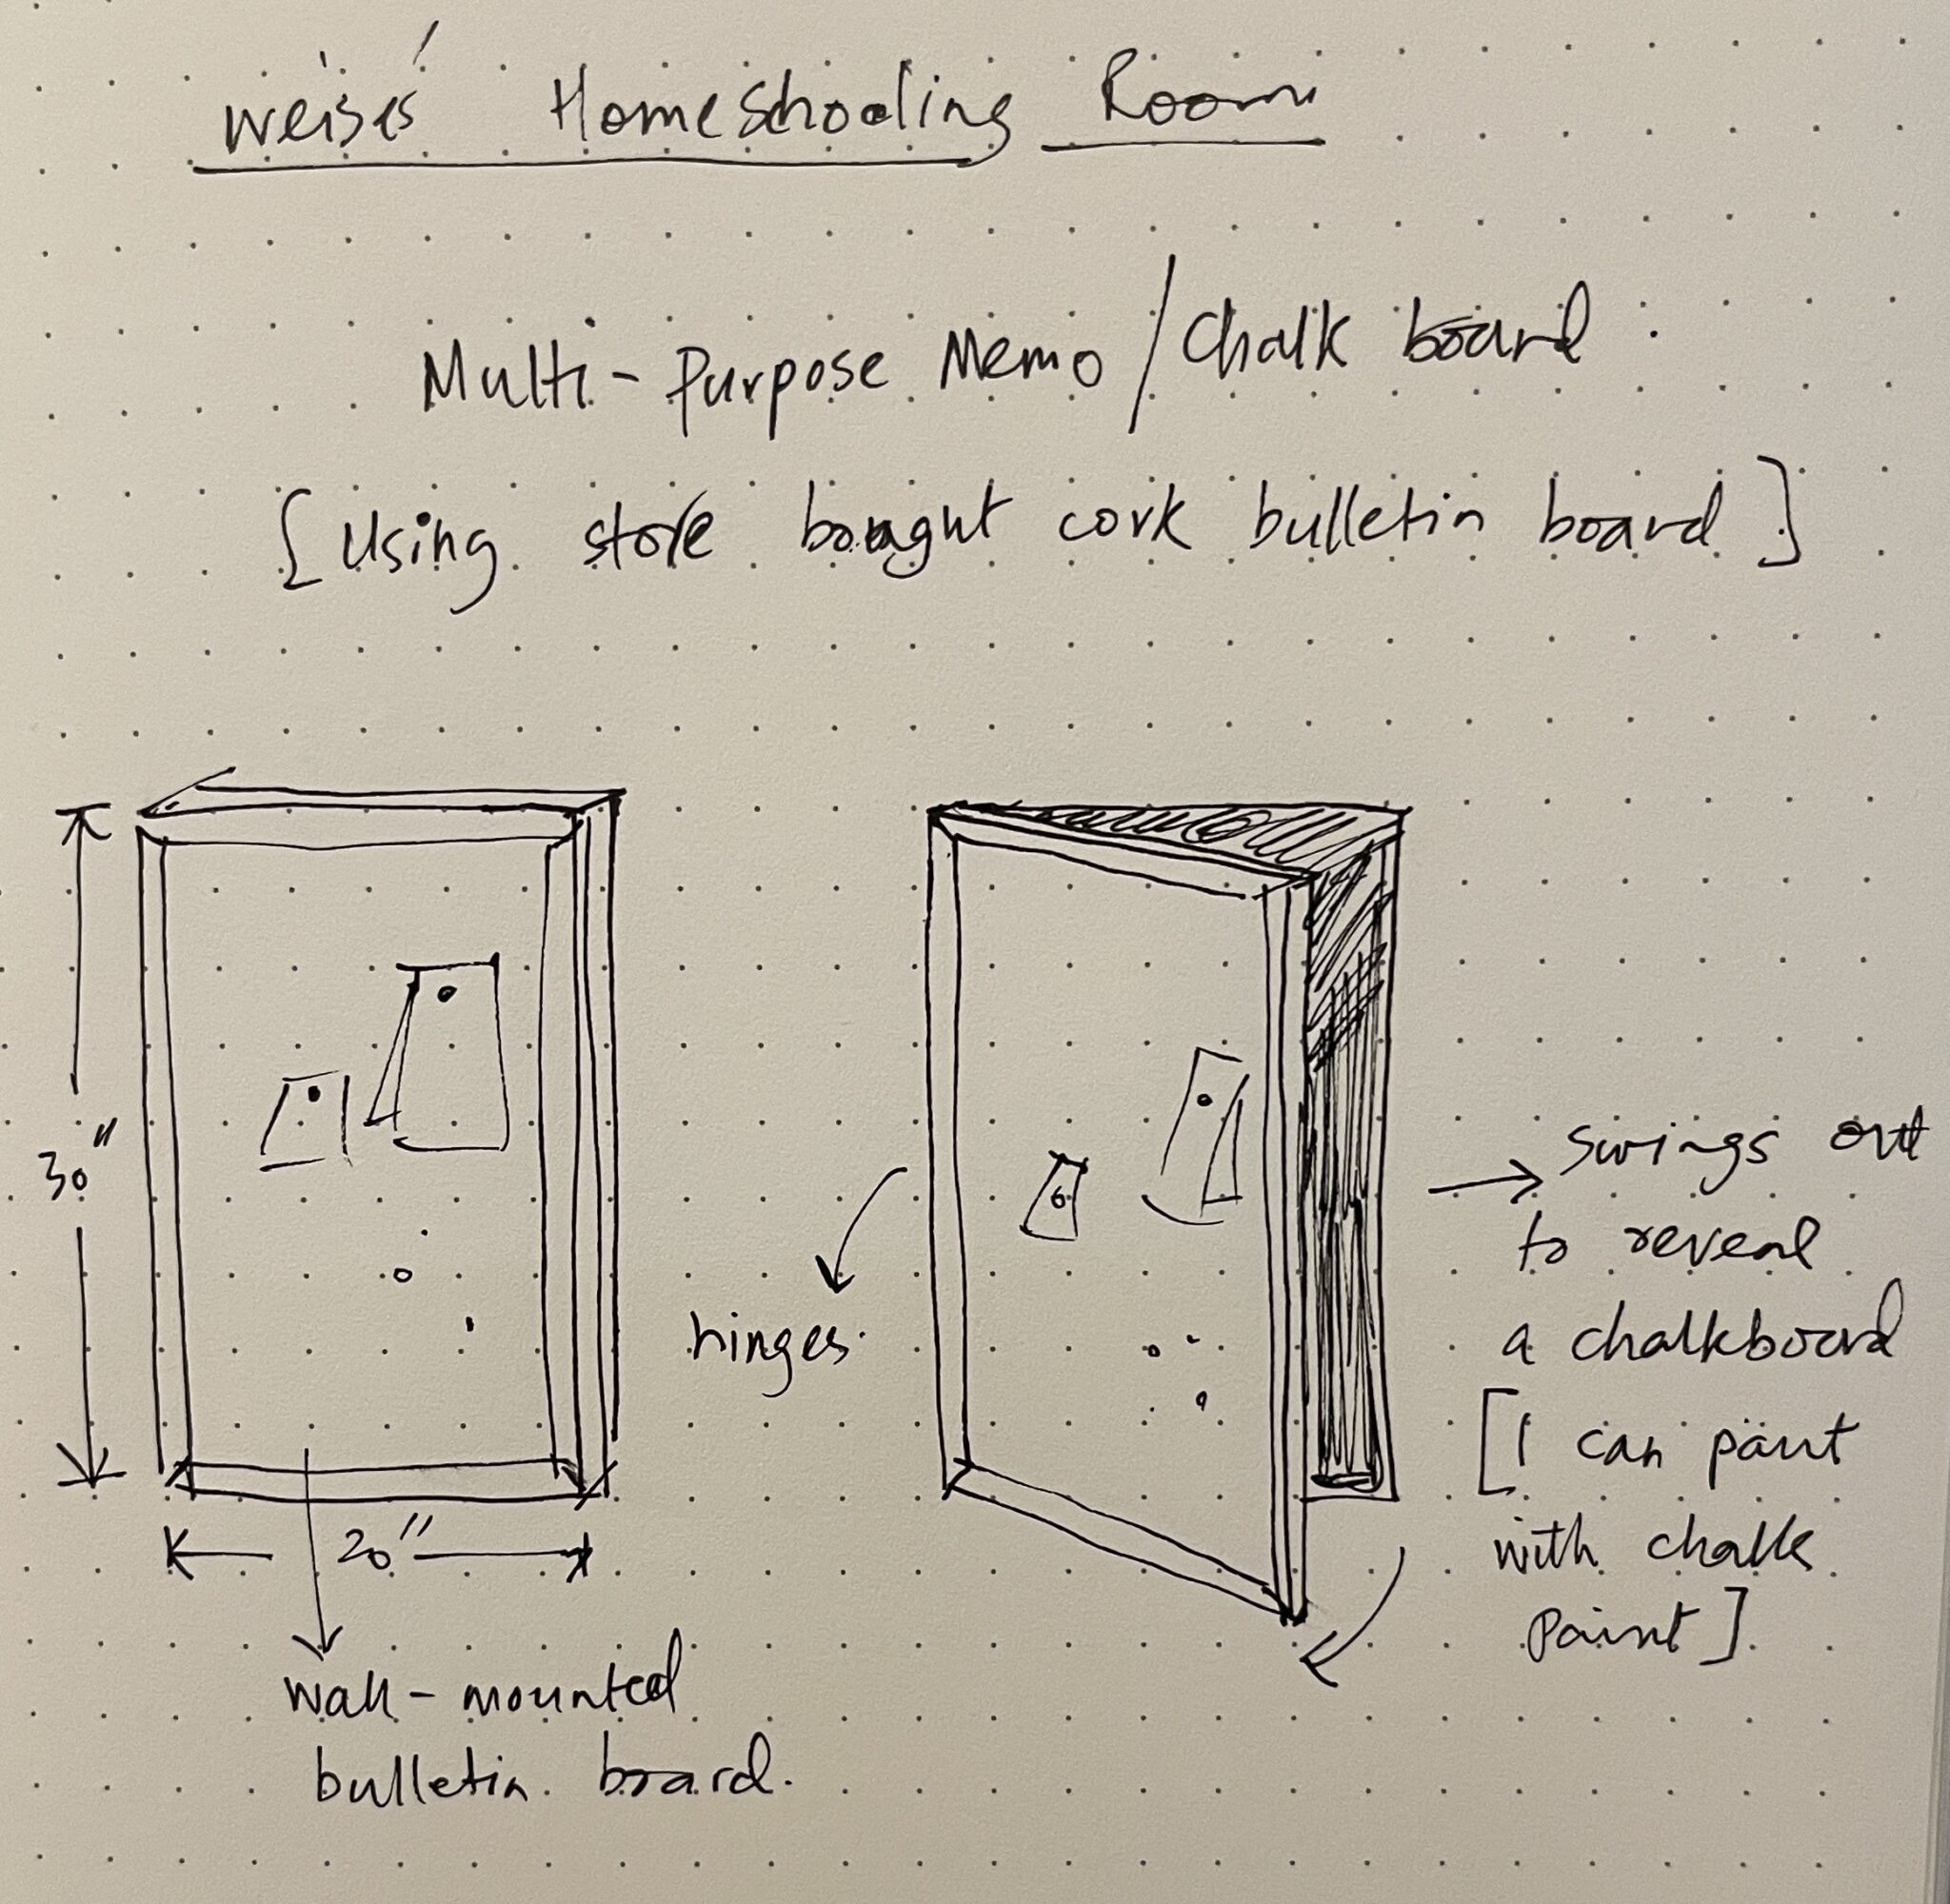 Weises' Homeschooling Room
Multi-Purpose Memo / Chalk board :
[Using store bought cork bulletin board]
30"
20"
wall-mounted
bulletin board.
hinges.
→ swings out
to reveal
a chalkboard
[I can paint
with chalk
paint].